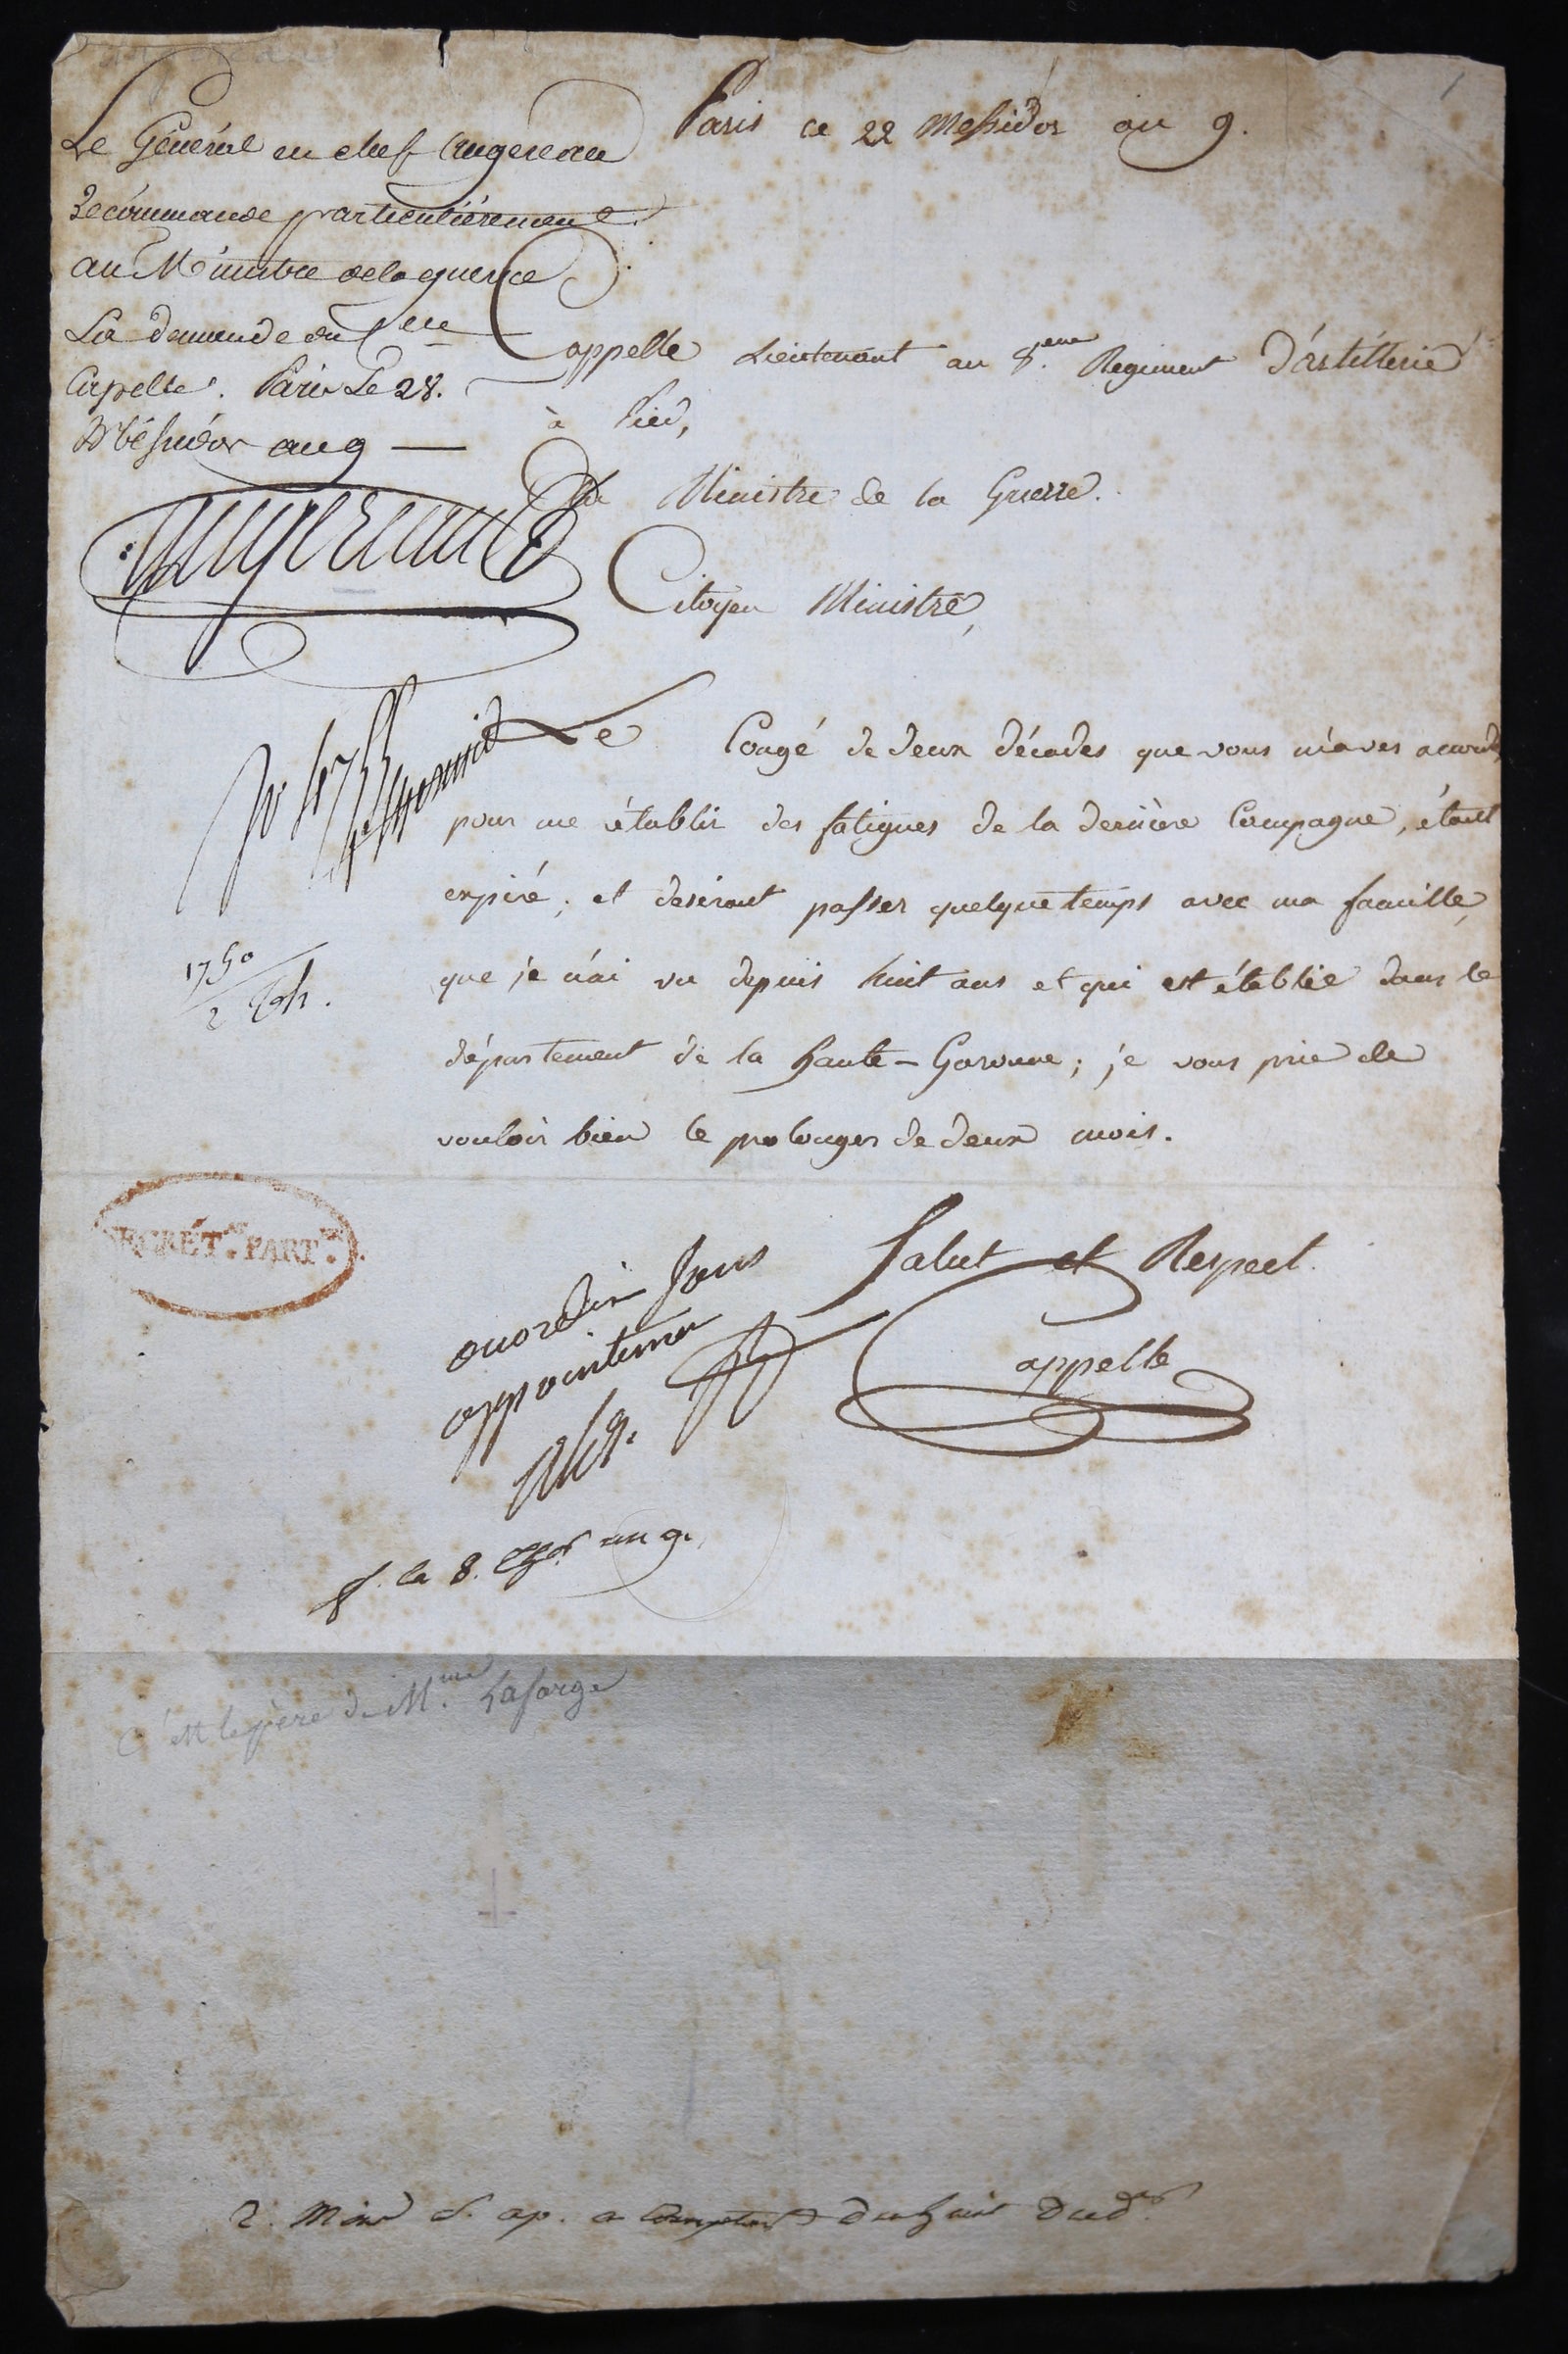 Paris ce 22 Messidor an 9.
Le Général en chef Augereau
Recommande particulièrement
au Ministre de la guerre
La demande du
Capelle. Paris Le 28.
Messidor an 9 —
Augereau
Cappelle Lieutenant au 8.eme Regiment D'artillerie
à Pied,
Au Ministre de la Guerre.
Citoyen Ministre,
Le Congé de deux décades que vous m'aves accordé
pour me rétablir des fatigues de la dernière Campagne, étant
expiré; et desirant passer quelque temps avec ma famille,
que je n'ai vu depuis huit ans et qui est établie dans le
département de la haute-Garonne; je vous prie de
vouloir bien le prolonger de deux mois.
1750
2
SECRÉT. PART.
Salut et Respect.
Cappelle
accordé sans
appointemen
le 8. an 9.
C'est le père de M.me Lafarge
2. Mois S. ap. a compter du huit dud.